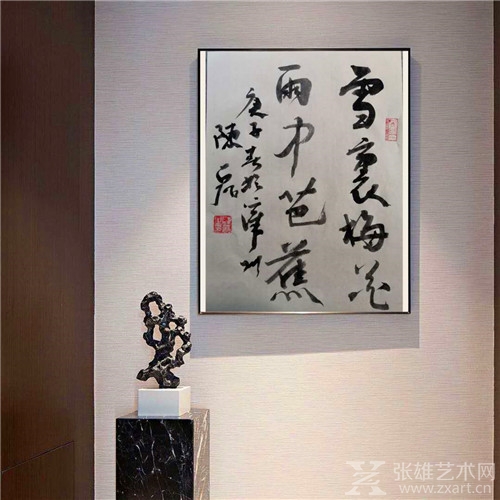 雪裏梅花
雨中芭蕉
庚子春於漳州
陳
张雄艺术网
www.zxart.cn